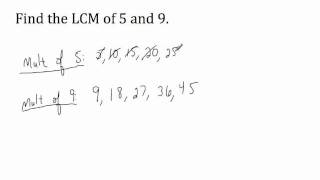 Find the LCM of 5 and 9.
Mult of 5: 5, 10, 15, 20, 25
Mult of 9: 9, 18, 27, 36, 45